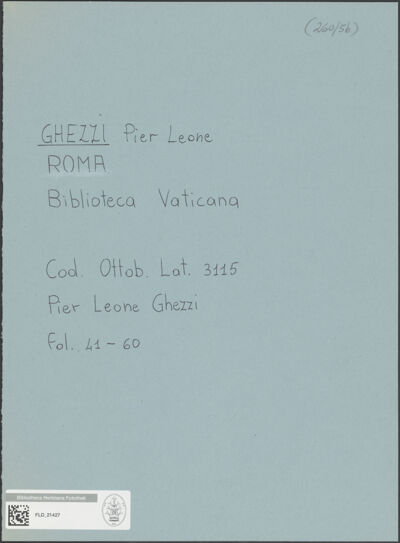 (260/56)
GHEZZI Pier Leone
ROMA
Biblioteca Vaticana
Cod. Ottob. Lat. 3115
Pier Leone Ghezzi
Fol. 41 - 60
Bibliotheca Hertziana Fotothek
FLD_21427